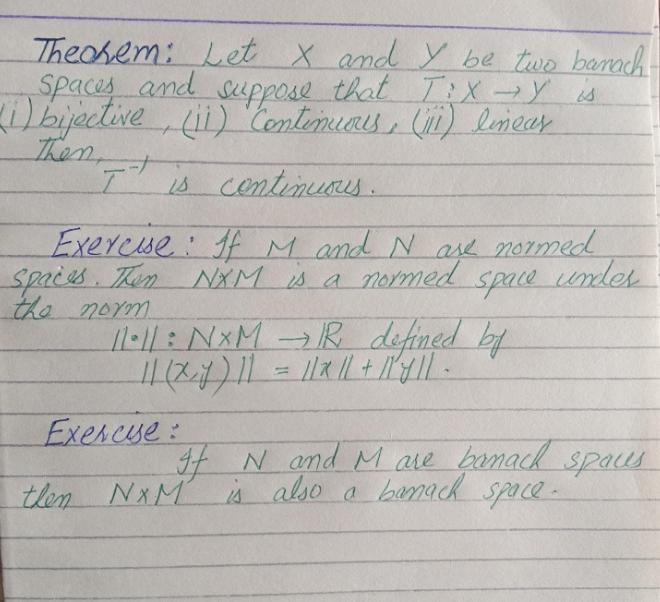 Theorem: Let X and Y be two banach
spaces and suppose that T: X → Y is
(i) bijective, (ii) Continuous, (iii) linear
Then,
T⁻¹ is continuous.
Exercise: If M and N are normed
spaces. Then N×M is a normed space under
the norm
||•|| : N×M → ℝ defined by
||(x,y)|| = ||x|| + ||y||.
Exercise:
If N and M are banach spaces
then N×M is also a banach space.